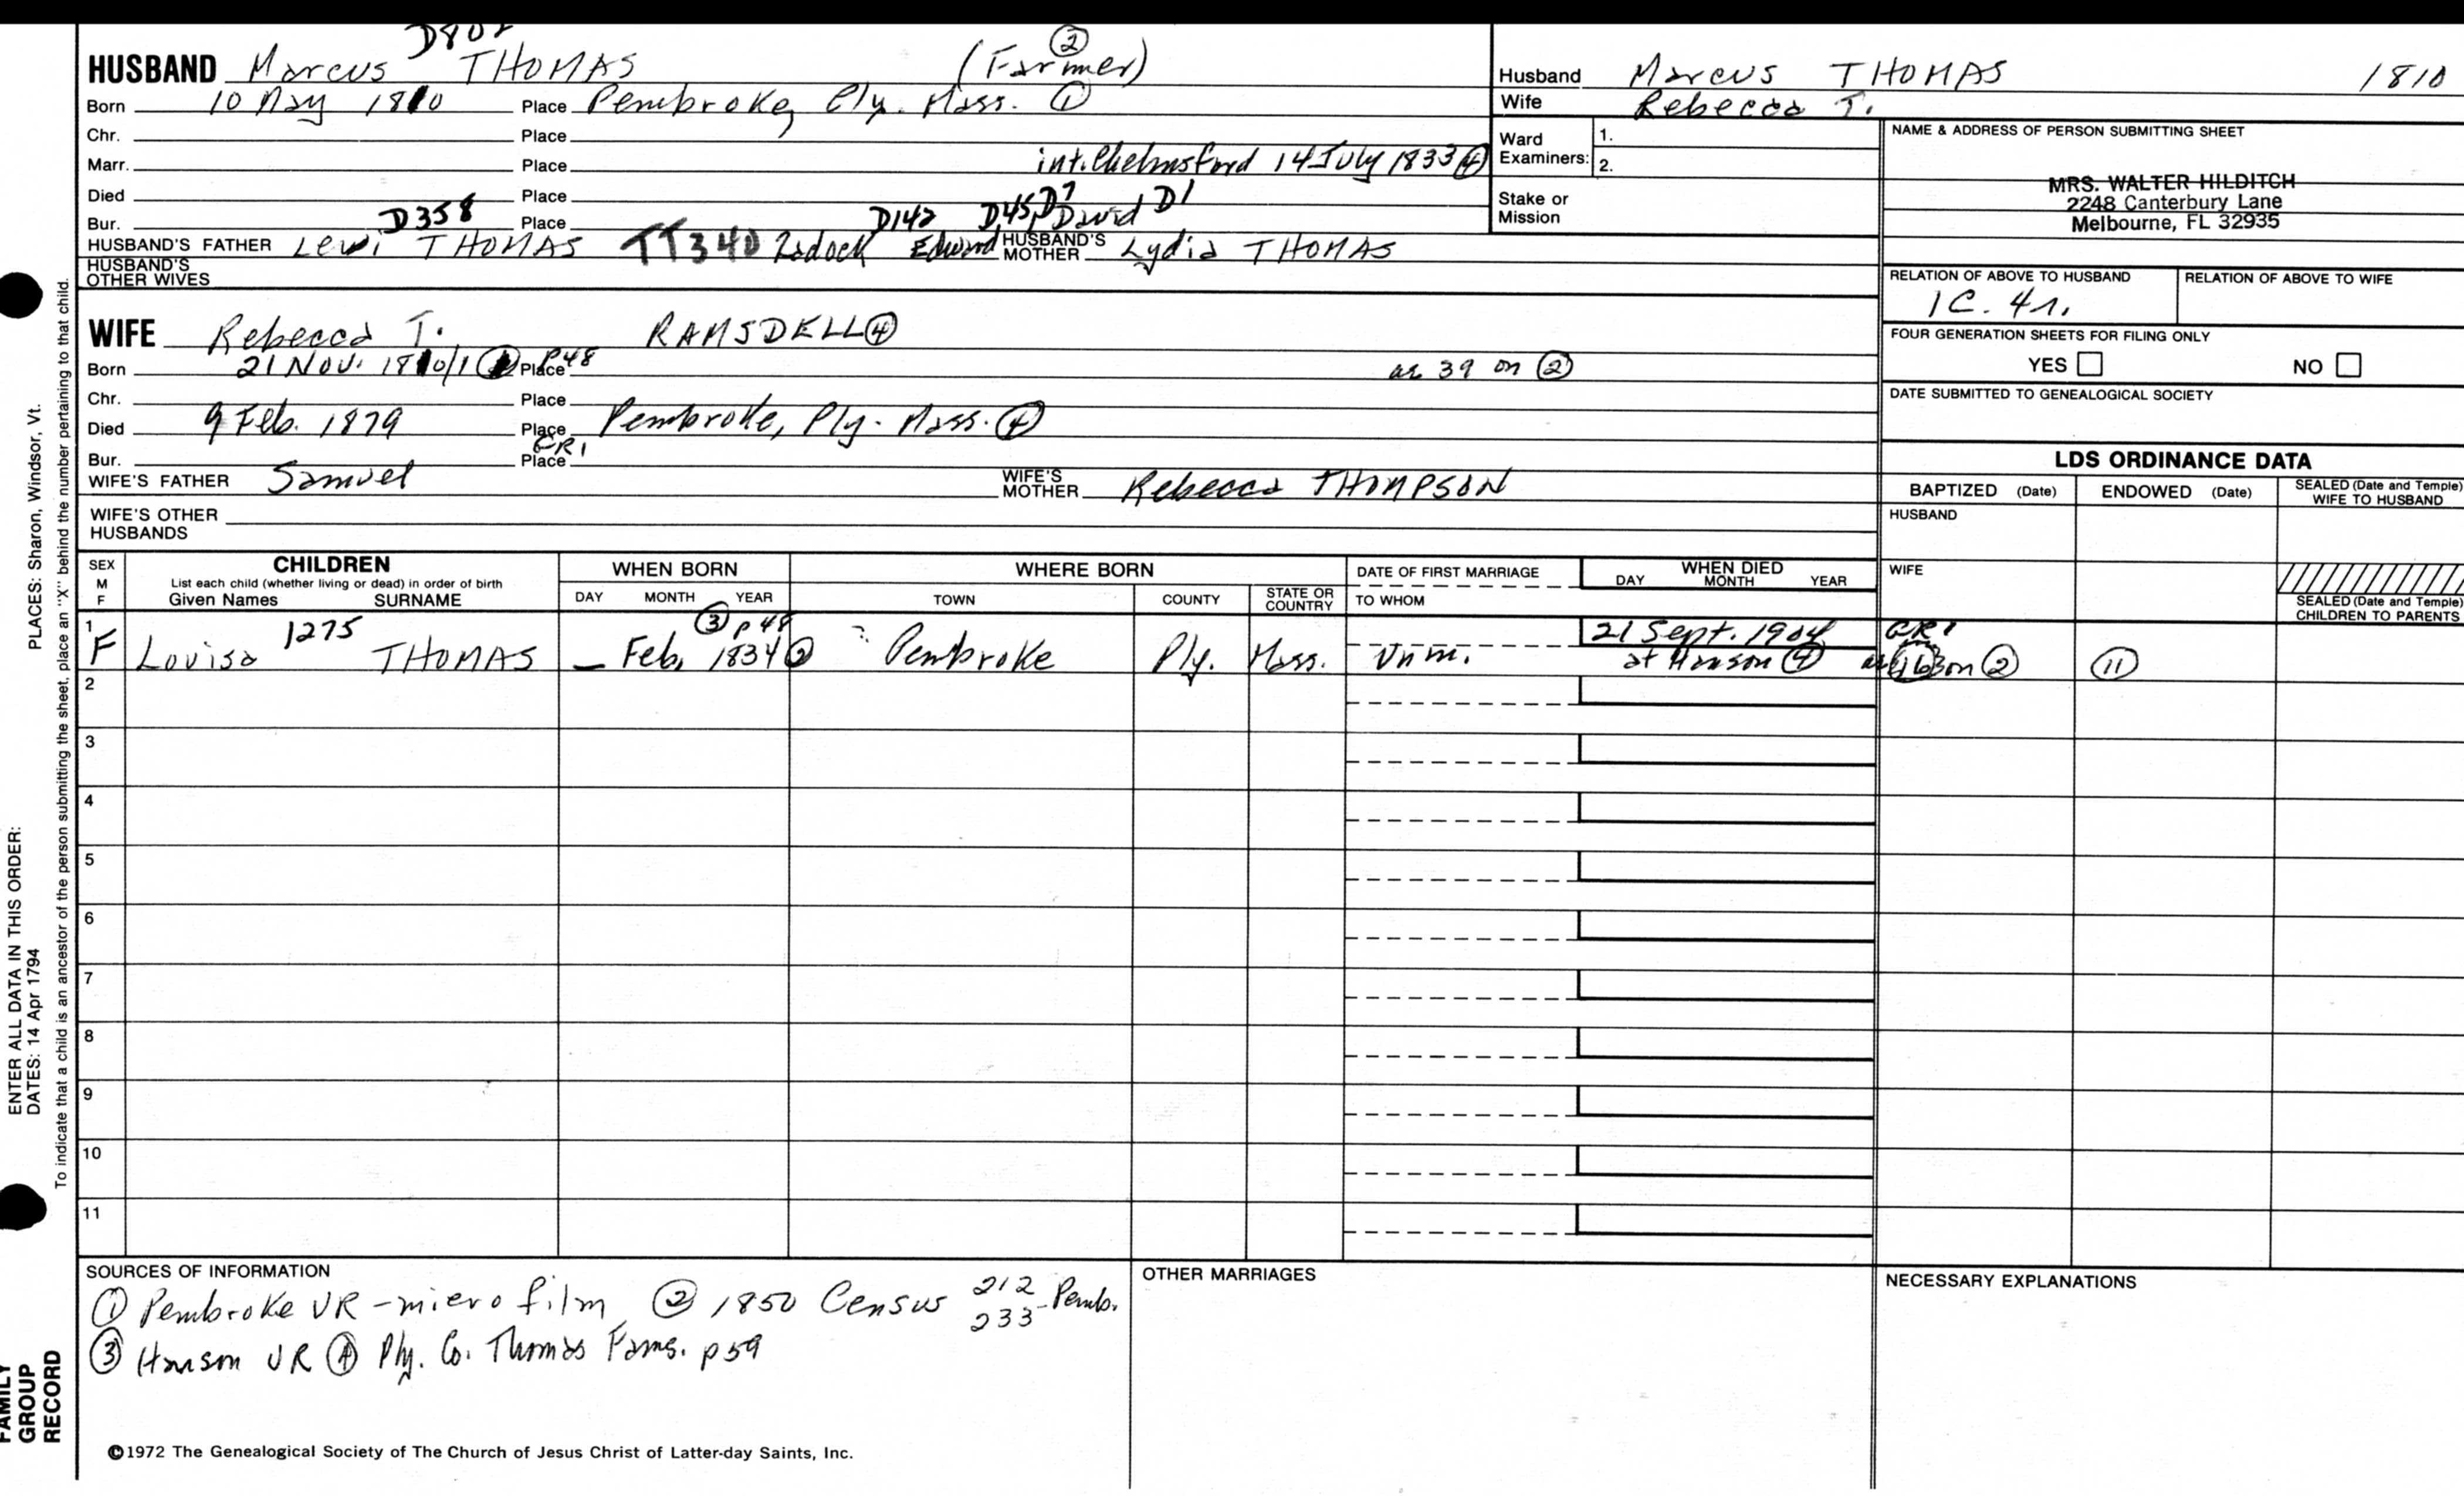 D802
HUSBAND Marcus THOMAS (Farmer) ②
Born 10 May 1810 Place Pembroke, Ply. Mass. ①
Chr. Place
Marr. Place int. Chelmsford 14 July 1833 ④
Died Place
Bur. D358 Place D142 D45 D7 David D1
HUSBAND'S FATHER Levi THOMAS TT340 Zadock Edward HUSBAND'S MOTHER Lydia THOMAS
HUSBAND'S OTHER WIVES
Husband Marcus THOMAS 1810
Wife Rebecca T.
Ward Examiners: 1.
2.
Stake or Mission
NAME & ADDRESS OF PERSON SUBMITTING SHEET
MRS. WALTER HILDITCH
2248 Canterbury Lane
Melbourne, FL 32935
RELATION OF ABOVE TO HUSBAND RELATION OF ABOVE TO WIFE
1C. 4r.
FOUR GENERATION SHEETS FOR FILING ONLY
YES NO
DATE SUBMITTED TO GENEALOGICAL SOCIETY
WIFE Rebecca T. RAMSDELL ④
Born 21 Nov. 1810/1 Place p48 ae 39 on ②
Chr. Place
Died 9 Feb. 1879 Place Pembroke, Ply. Mass. ④
Bur. Place GR1
WIFE'S FATHER Samuel WIFE'S MOTHER Rebecca THOMPSON
WIFE'S OTHER HUSBANDS
LDS ORDINANCE DATA
BAPTIZED (Date) ENDOWED (Date) SEALED (Date and Temple) WIFE TO HUSBAND
HUSBAND
WIFE
SEALED (Date and Temple) CHILDREN TO PARENTS
SEX M F CHILDREN WHEN BORN WHERE BORN DATE OF FIRST MARRIAGE WHEN DIED
List each child (whether living or dead) in order of birth DAY MONTH YEAR
Given Names SURNAME DAY MONTH YEAR TOWN COUNTY STATE OR COUNTRY TO WHOM
1 1275 ③ p48 21 Sept. 1904 GR1
F Louisa THOMAS _ Feb. 1834 ② Pembroke Ply. Mass. Unm. at Hanson ④ on ② ⑪
2
3
4
5
6
7
8
9
10
11
SOURCES OF INFORMATION
① Pembroke VR - microfilm ② 1850 Census 212 233 - Pemb.
③ Hanson VR ④ Ply. Co. Thomas Fams. p59
OTHER MARRIAGES
NECESSARY EXPLANATIONS
©1972 The Genealogical Society of The Church of Jesus Christ of Latter-day Saints, Inc.
FAMILY GROUP RECORD
ENTER ALL DATA IN THIS ORDER:
DATES: 14 Apr 1794 PLACES: Sharon, Windsor, Vt.
To indicate that a child is an ancestor of the person submitting the sheet, place an "X" behind the number pertaining to that child.